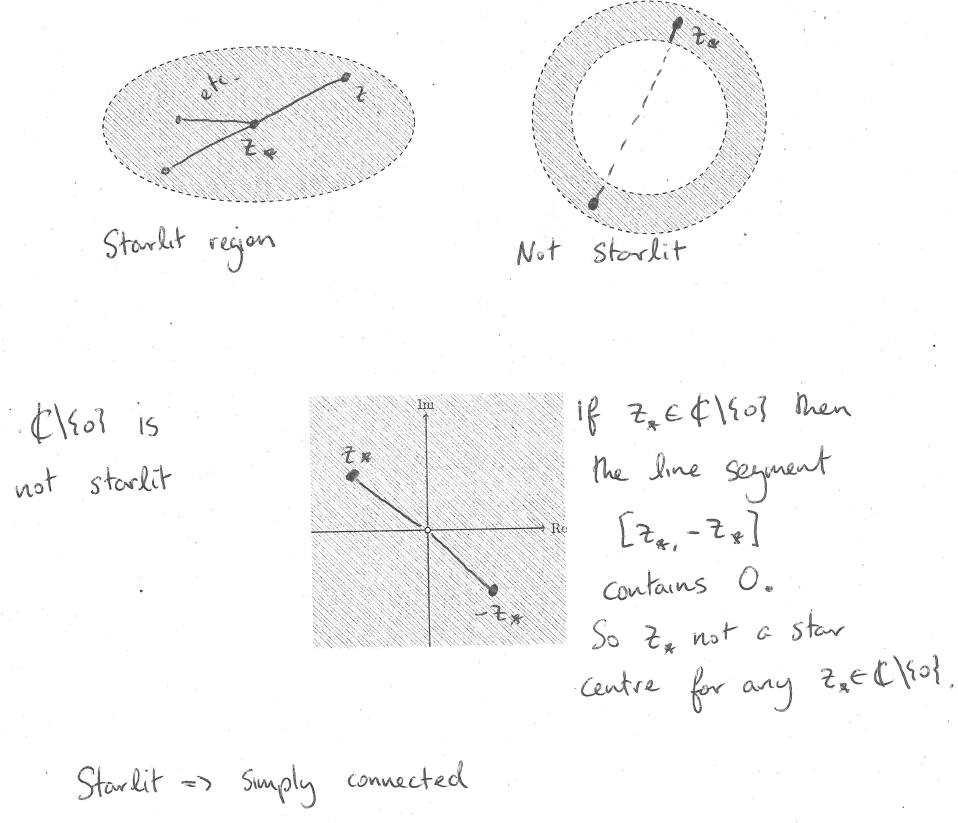 etc.
z
z_*
Starlit region
z_*
Not starlit
ℂ\{0} is
not starlit
Im
Re
z_*
-z_*
if z_* ∈ ℂ\{0} then
the line segment
[z_*, -z_*]
contains 0.
So z_* not a star
centre for any z_* ∈ ℂ\{0}.
Starlit => simply connected